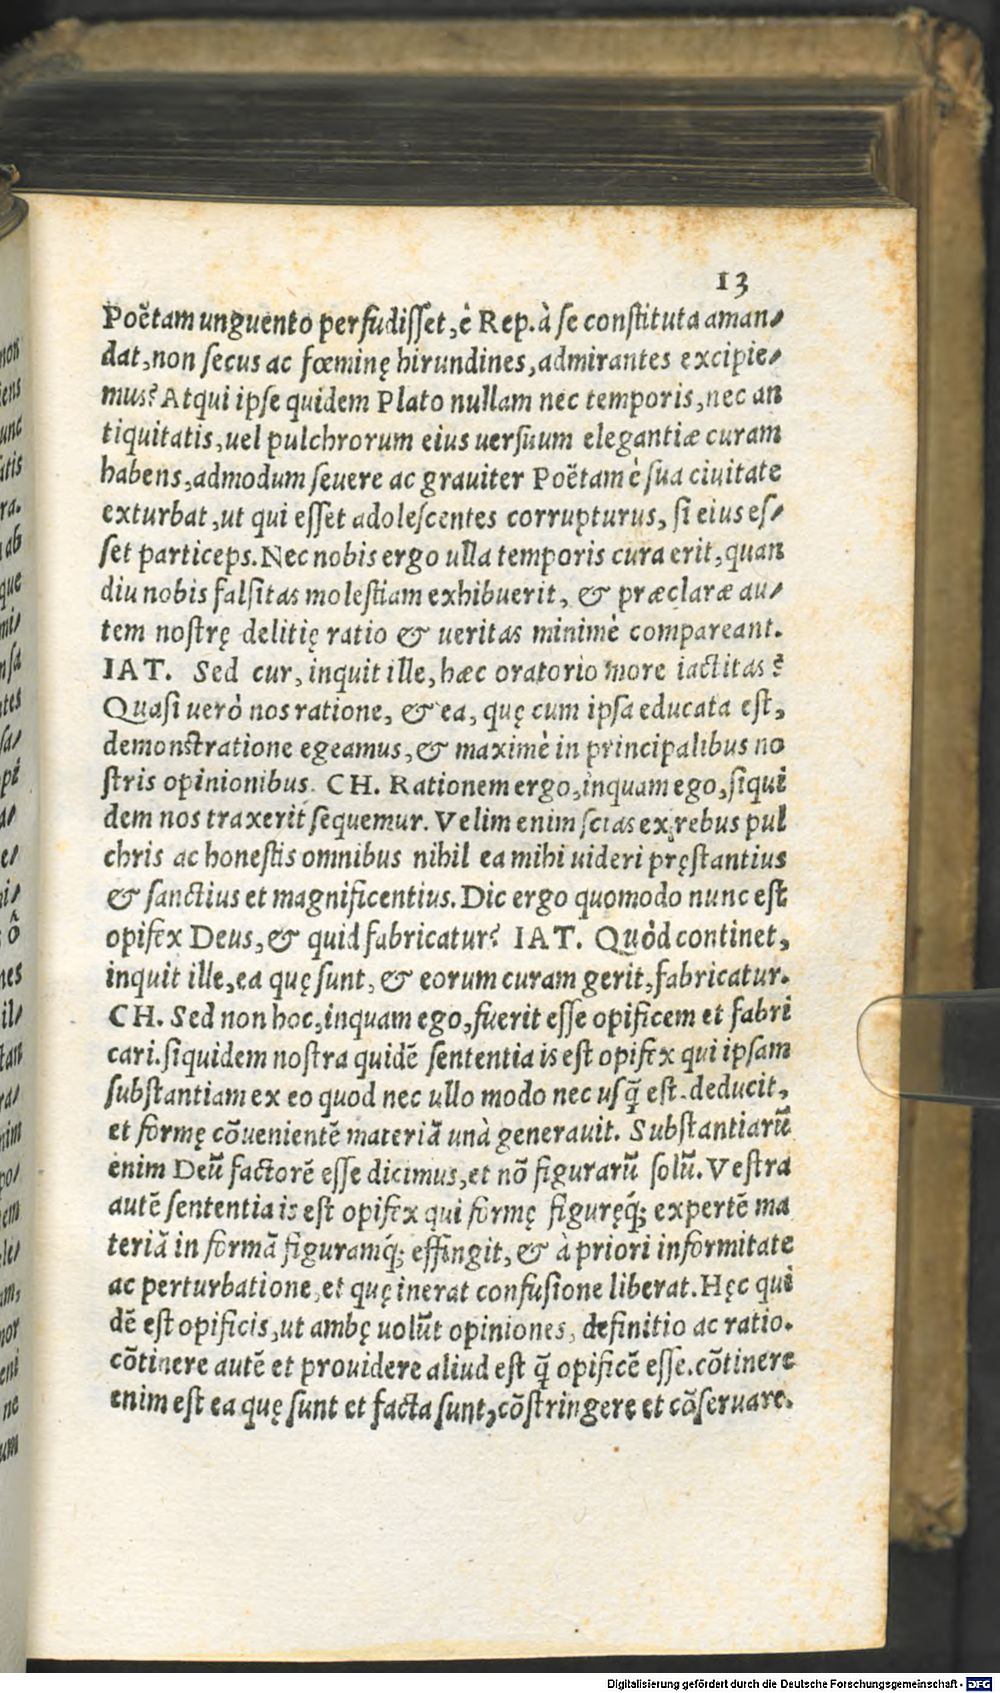 13
Poẽtam unguento perfudisset, è Rep. à se constituta aman⸗
dat, non secus ac fœminę hirundines, admirantes excipie⸗
mus? Atqui ipse quidem Plato nullam nec temporis, nec an
tiquitatis, uel pulchrorum eius uersuum elegantiæ curam
habens, admodum seuere ac grauiter Poẽtam è sua ciuitate
exturbat, ut qui esset adolescentes corrupturus, si eius es⸗
set particeps. Nec nobis ergo ulla temporis cura erit, quan
diu nobis falsitas molestiam exhibuerit, & præclaræ au⸗
tem nostrę delitię ratio & ueritas minimè compareant.
IAT. Sed cur, inquit ille, hæc oratorio more iactitas?
Quasi uerò nos ratione, & ea, quę cum ipsa educata est,
demonstratione egeamus, & maximè in principalibus no
stris opinionibus. CH. Rationem ergo, inquam ego, siqui
dem nos traxerit sequemur. Velim enim scias ex rebus pul
chris ac honestis omnibus nihil ea mihi uideri pręstantius
& sanctius et magnificentius. Dic ergo quomodo nunc est
opifex Deus, & quid fabricatur? IAT. Quòd continet,
inquit ille, ea quę sunt, & eorum curam gerit, fabricatur.
CH. Sed non hoc, inquam ego, fuerit esse opificem et fabri
cari. siquidem nostra quidẽ sententia is est opifex qui ipsam
substantiam ex eo quod nec ullo modo nec usq̃ est. deducit,
et formę cõuenientẽ materiã unà generauit. Substantiarũ
enim Deũ factorẽ esse dicimus, et nõ figurarũ solũ. Vestra
autẽ sententia is est opifex qui formę figuręq́; expertẽ ma
teriã in formã figuramq́; effingit, & à priori informitate
ac perturbatione, et quę inerat confusione liberat. Hęc qui
dẽ est opificis, ut ambę uolũt opiniones, definitio ac ratio.
cõtinere autẽ et prouidere aliud est q̃ opificẽ esse. cõtinere
enim est ea quę sunt et facta sunt, cõstringere et cõseruare.
Digitalisierung gefördert durch die Deutsche Forschungsgemeinschaft - DFG